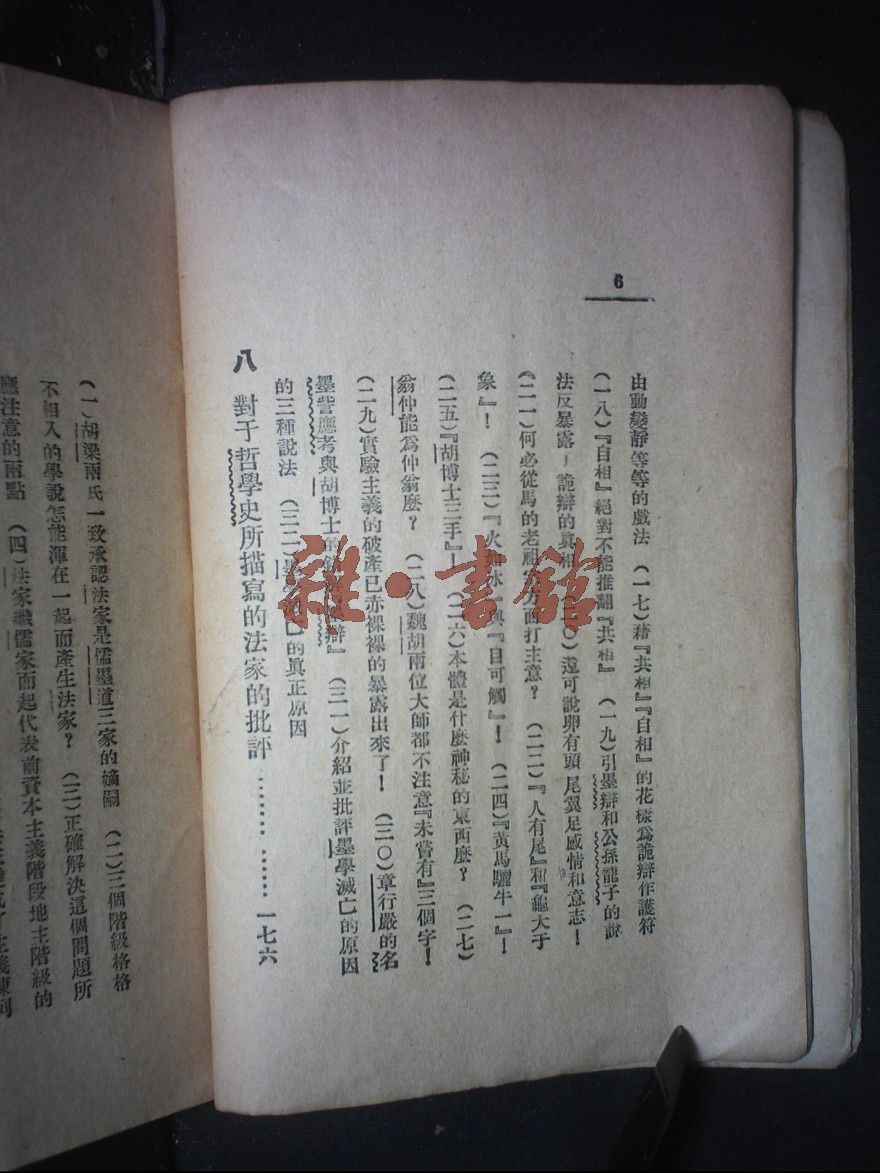 6
由動變靜等等的戲法　（一七）藉『共相』『自相』的花樣爲詭辯作護符
（一八）『自相』絕對不能推翻『共相』　（一九）引墨辯和公孫龍子的說
法反暴露了詭辯的眞相　（二〇）還可說卵有頭尾翼足感情和意志！
（二一）何必從馬的老祖宗方面打主意？　（二二）『人有尾』和『龜大于
象』！　（二三）『火如冰』與『目可觸』！　（二四）『黃馬驪牛一』！
（二五）『胡博士三手』！　（二六）本體是什麼神秘的東西麼？　（二七）
翁仲能爲仲翁麼？　（二八）魏胡兩位大師都不注意『未嘗有』三個字！
（二九）實驗主義的破產已赤裸裸的暴露出來了！　（三〇）章行嚴的名
墨訾應考與胡博士的 辯』　（三一）介紹並批評墨學滅亡的原因
的三種說法　（三二）墨學滅亡的眞正原因
八　對于哲學史所描寫的法家的批評…………一七六
（一）胡梁兩氏一致承認法家是儒墨道三家的嫡嗣　（二）三個階級格格
不相入的學說怎能渾在一起而產生法家？　（三）正確解決這個問題所
應注意的兩點　（四）法家繼儒家而起代表前資本主義階段地主階級的
雜・書館